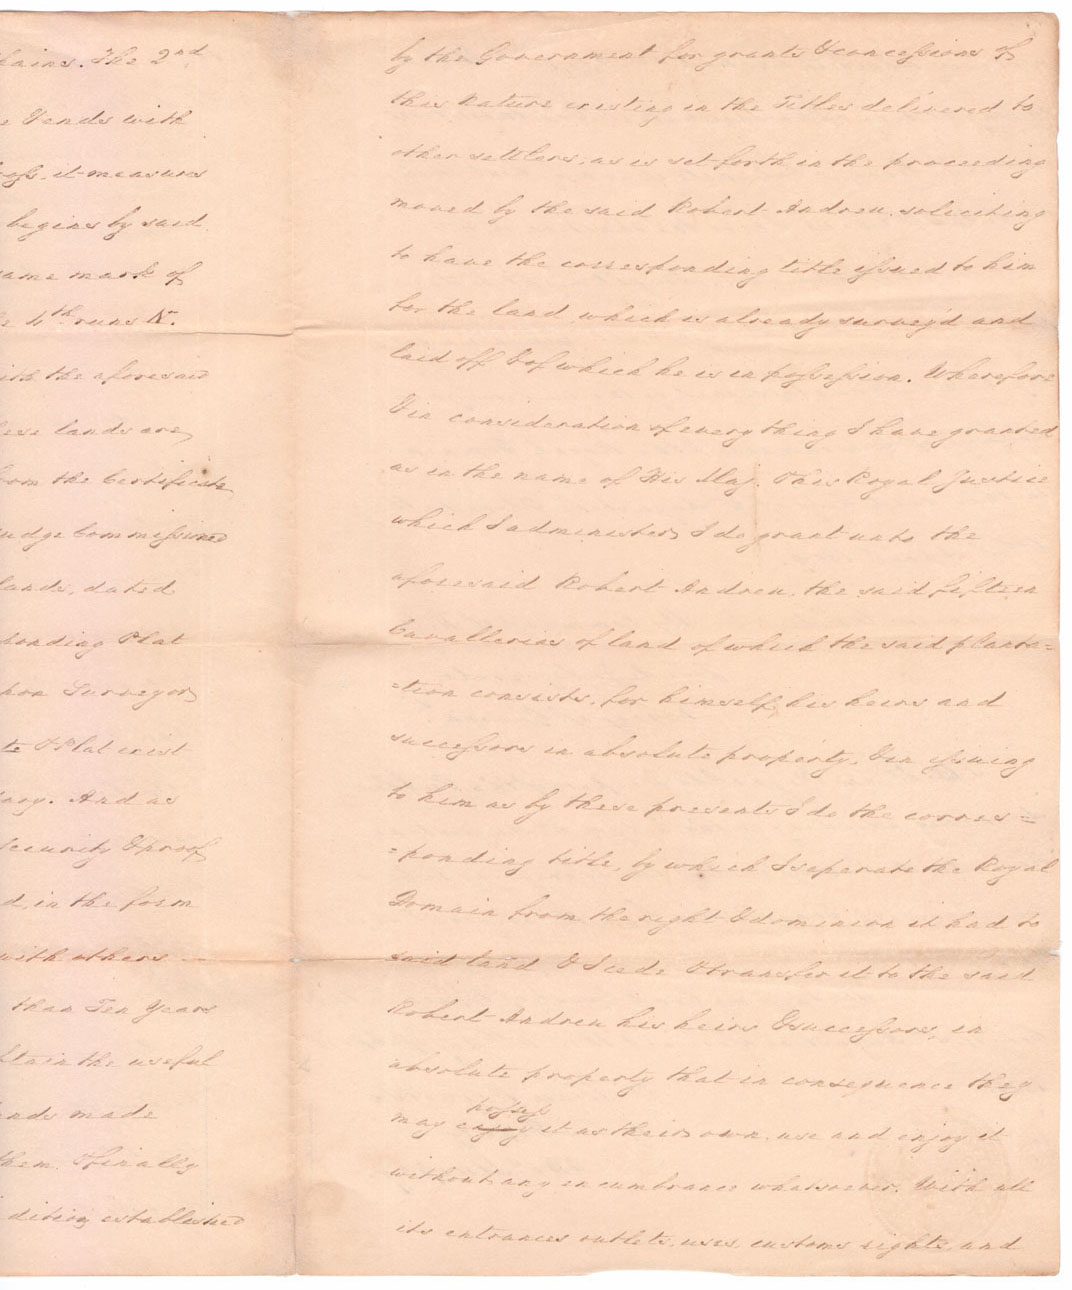 hains. The 2nd
e Vends with
ross. it measures
begins by said
same mark of
e 4th runs N.
ith the aforesaid
hese lands are
from the Certificate
udge Commissioned
lands, dated
ponding Plat
Surveyor
te & Plat exist
And as
Security & proof
d, in the form
with others
than Ten Years
btain the useful
ands made
them. & finally
dition established
by the Government for grants & concessions of
this Nature existing in the Titles delivered to
other settlers; as is set forth in the proceeding
moved by the said Robert Andreu, soliciting
to have the corresponding title issued to him
for the land which is already survey'd and
laid off & of which he is in possession. Wherefore
& in consideration of every thing I have granted
as in the name of His Maj. This Royal Justice
which I administer, I do grant unto the
aforesaid Robert Andreu, the said fifteen
Cavallerias of land of which the said planta=
=tion consists, for himself, his heirs and
successors in absolute property, & in issuing
to him as by these presents I do the corres=
=ponding title, by which I seperate the Royal
Domain from the right & dominion it had to
said land & I cede & transfer it to the said
Robert Andreu his heirs & successors, in
absolute property that in consequence they
may enjoy possess it as their own, use and enjoy it
without any incumbrance whatsoever. With all
its entrances outlets, uses, customs rights and